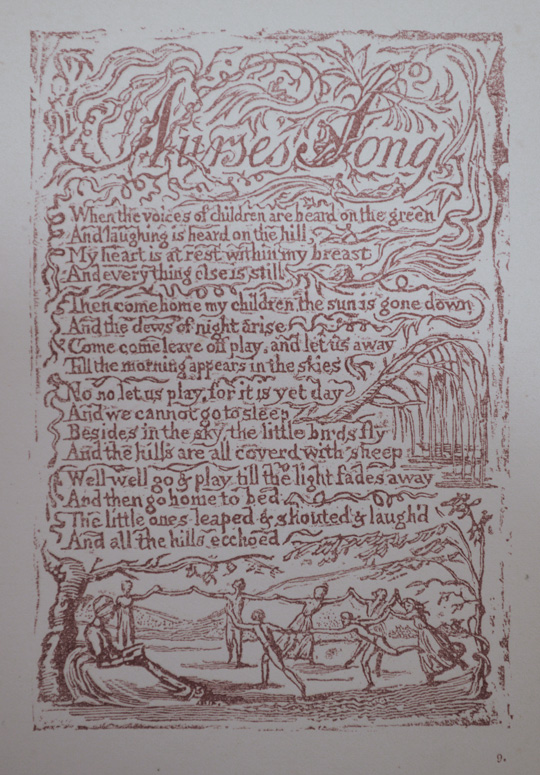 Nurses Song
When the voices of children are heard on the green
And laughing is heard on the hill,
My heart is at rest within my breast
And every thing else is still
Then come home my children, the sun is gone down
And the dews of night arise
Come come leave off play, and let us away
Till the morning appears in the skies
No no let us play, for it is yet day
And we cannot go to sleep
Besides in the sky, the little birds fly
And the hills are all coverd with sheep
Well well go & play till the light fades away
And then go home to bed
The little ones leaped & shouted & laugh'd
And all the hills ecchoed
9.